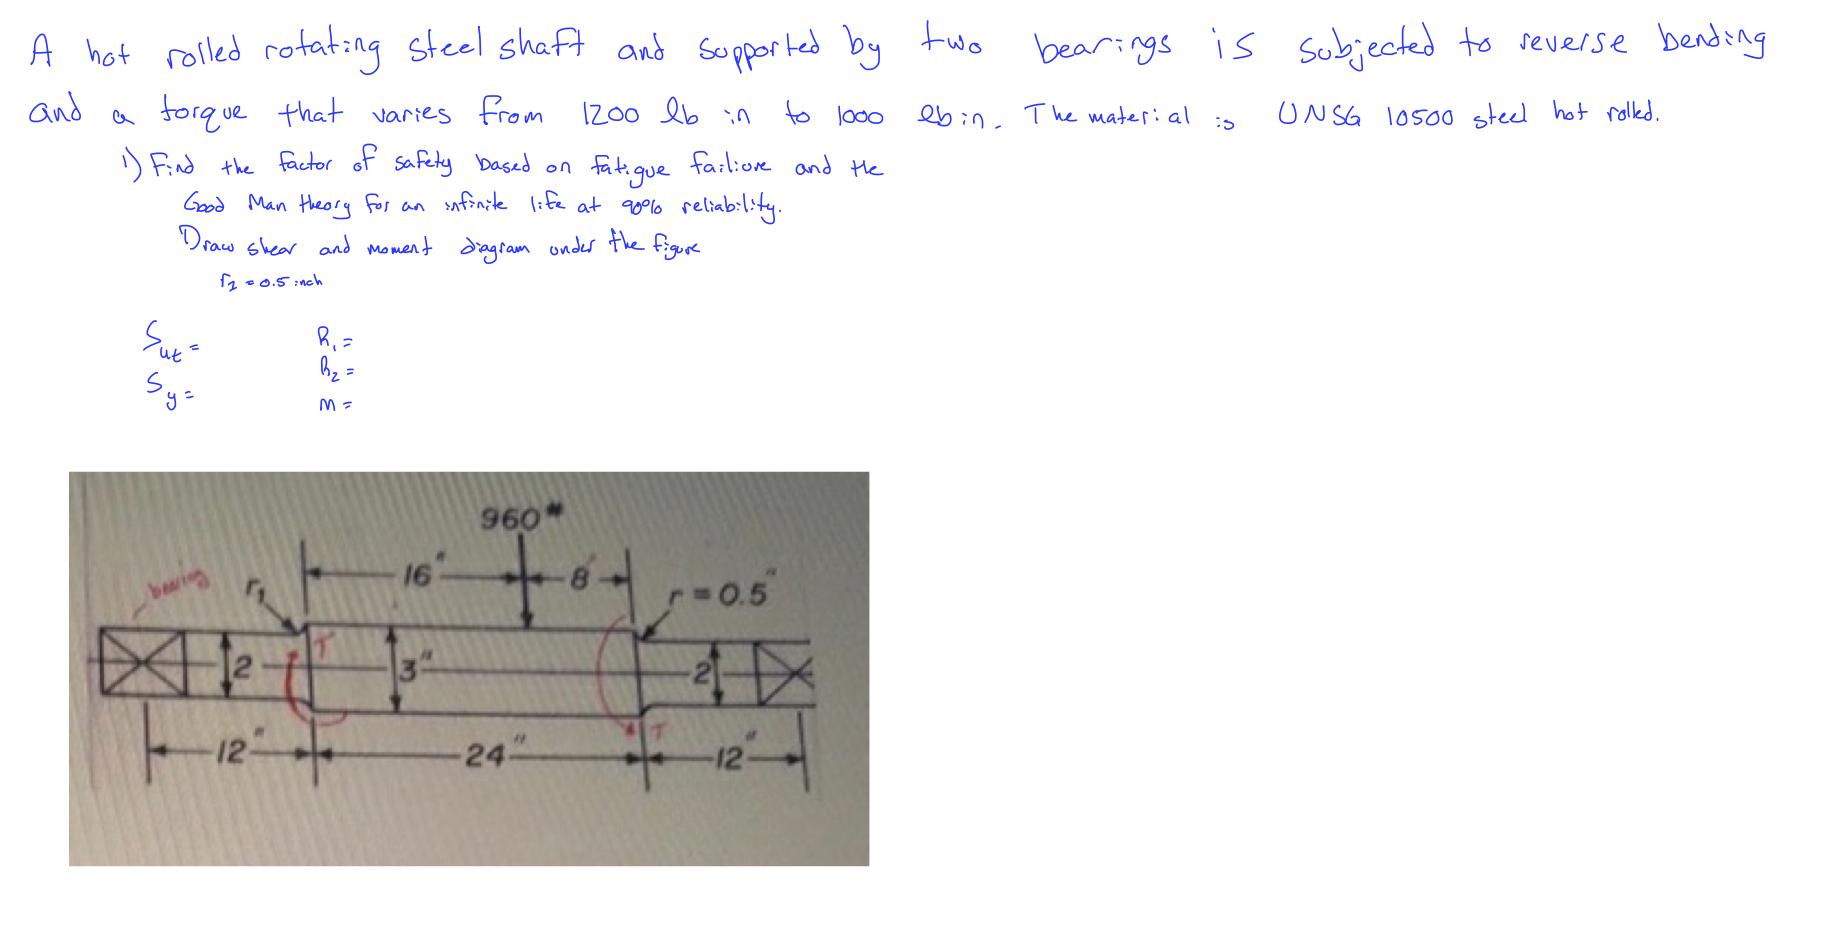 A hot rolled rotating steel shaft and supported by two bearings is subjected to reverse bending
and a torque that varies from 1200 lb in to 1000 lb in. The material is UNSG 10500 steel hot rolled.
1) Find the factor of safety based on fatigue failiure and the
Good Man theory for an infinite life at 90% reliability.
Draw shear and moment diagram under the figure
r2 = 0.5 inch
Sut =
R1 =
R2 =
Sy =
M =
960#
16"
8"
bearing
r1
r = 0.5"
T
2
3"
2
T
12"
24"
12"